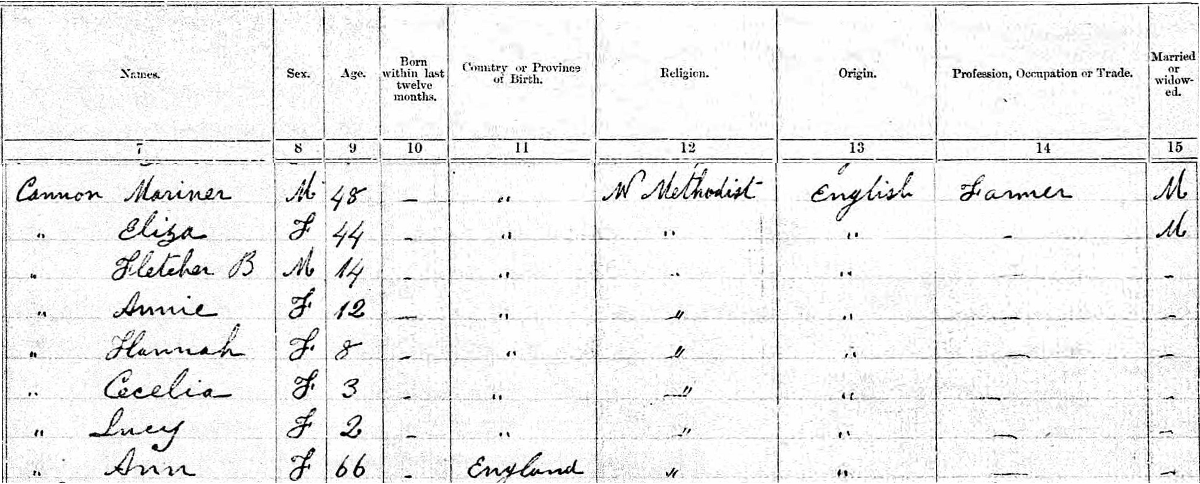 Names. Sex. Age. Born within last twelve months. Country or Province of Birth. Religion. Origin. Profession, Occupation or Trade. Married or widow-ed.
7 8 9 10 11 12 13 14 15
Cannon Mariner M 48 – " W Methodist English Farmer M
" Eliza F 44 – " " " – M
" Fletcher B M 14 – " " " – –
" Annie F 12 – " " " – –
" Hannah F 8 – " " " – –
" Cecelia F 3 – " " " – –
" Lucy F 2 – " " " – –
" Ann F 66 – England " " – –